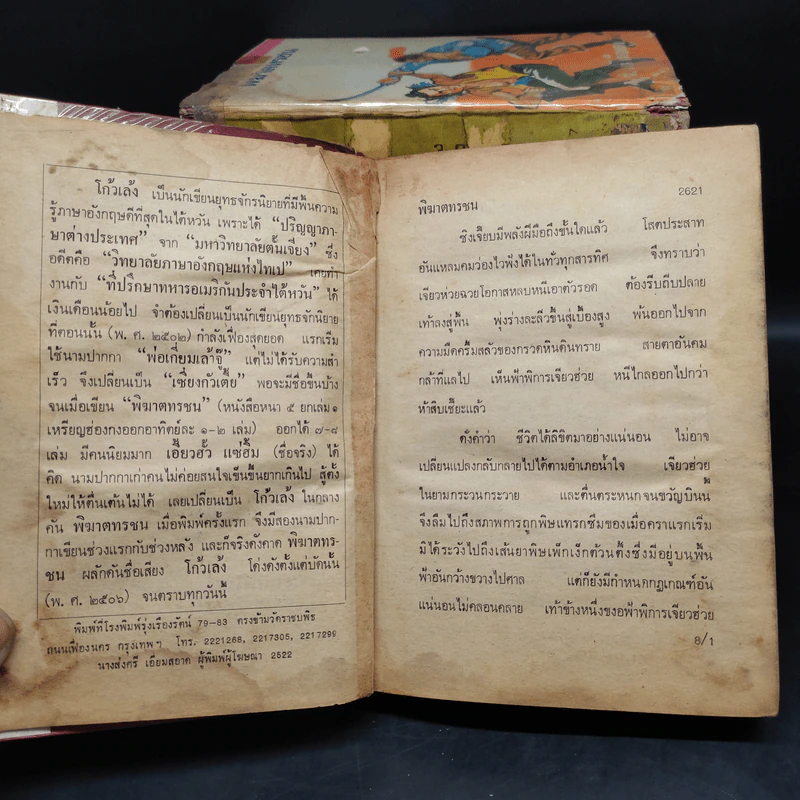 โก้วเล้ง เป็นนักเขียนยุทธจักรนิยายที่มีพื้นความ
รู้ภาษาอังกฤษดีที่สุดในไต้หวัน เพราะได้ “ปริญญาภา-
ษาต่างประเทศ” จาก “มหาวิทยาลัยตั้มเจียง” ซึ่ง
อดีตคือ “วิทยาลัยภาษาอังกฤษแห่งไทเป” เคยทำ
งานกับ “ที่ปรึกษาทหารอเมริกันประจำไต้หวัน” ได้
เงินเดือนน้อยไป จำต้องเปลี่ยนเป็นนักเขียนยุทธจักรนิยาย
ที่ตอนนั้น (พ. ศ. ๒๕๐๒) กำลังเฟื่องสุดยอด แรกเริ่ม
ใช้นามปากกา “พ่อเกี่ยมเล้าจู๊” แต่ไม่ได้รับความสำ
เร็จ จึงเปลี่ยนเป็น “เซี่ยงกัวเตี้ย” พอจะมีชื่อขึ้นบ้าง
จนเมื่อเขียน “พิฆาตทรชน” (หนังสือหนา ๕ ยกเล่ม ๑
เหรียญฮ่องกงออกอาทิตย์ละ ๑-๒ เล่ม) ออกได้ ๗-๘
เล่ม มีคนนิยมมาก เอี้ยวฮั้ว แซ่ฮิ้ม (ชื่อจริง) ได้
คิด นามปากกาเก่าคนไม่ค่อยสนใจเข็นขึ้นยากเกินไป สู้ตั้ง
ใหม่ให้ตื่นเต้นไม่ได้ เลยเปลี่ยนเป็น โก้วเล้ง ในกลาง
คัน พิฆาตทรชน เมื่อพิมพ์ครั้งแรก จึงมีสองนามปาก-
กาเขียนช่วงแรกกับช่วงหลัง และก็จริงดังคาด พิฆาตทร-
ชน ผลักดันชื่อเสียง โก้วเล้ง โด่งดังตั้งแต่บัดนั้น
(พ. ศ. ๒๕๐๖) จนตราบทุกวันนี้
พิมพ์ที่โรงพิมพ์รุ่งเรืองรัตน์ 79-83 ตรงข้ามวัดราชบพิธ
ถนนเฟื่องนคร กรุงเทพฯ โทร. 2221268, 2217305, 2217299
นางส่งศรี เอี่ยมสอาด ผู้พิมพ์ผู้โฆษณา 2522
พิฆาตทรชน
2621
ซิงเจี๊ยบมีพลังฝีมือถึงขั้นใดแล้ว โสตประสาท
อันแหลมคมว่องไวฟังได้ในทั่วทุกสารทิศ จึงทราบว่า
เจียวห่วยฉวยโอกาสหลบหนีเอาตัวรอด ต้องรีบถีบปลาย
เท้าลงสู่พื้น พุ่งร่างละลิ่วขึ้นสู่เบื้องสูง พ้นออกไปจาก
ความมืดครึ้มสลัวของกรวดหินดินทราย สายตาอันคม
กล้าที่แลไป เห็นฟ้าพิการเจียวฮ่วย หนีไกลออกไปกว่า
ห้าสิบเชี๊ยะแล้ว
ดังคำว่า ชีวิตได้ลิขิตมาอย่างแน่นอน ไม่อาจ
เปลี่ยนแปลงกลับกลายไปได้ตามอำเภอน้ำใจ เจียวฮ่วย
ในยามกระวนกระวาย และตื่นตระหนกจนขวัญบินนี้
จึงลืมไปถึงสภาพการถูกพิษแทรกซึมของเมื่อคราแรกเริ่ม
มิได้ระวังไปถึงเส้นยาพิษเพ็กเง็กต้วนตั้งซึ่งมีอยู่บนพื้น
ฟ้าอันกว้างขวางไปศาล แต่ก็ยังมีกำหนดกฎเกณฑ์อัน
แน่นอนไม่คลอนคลาย เท้าข้างหนึ่งของฟ้าพิการเจียวฮ่วย
8/1